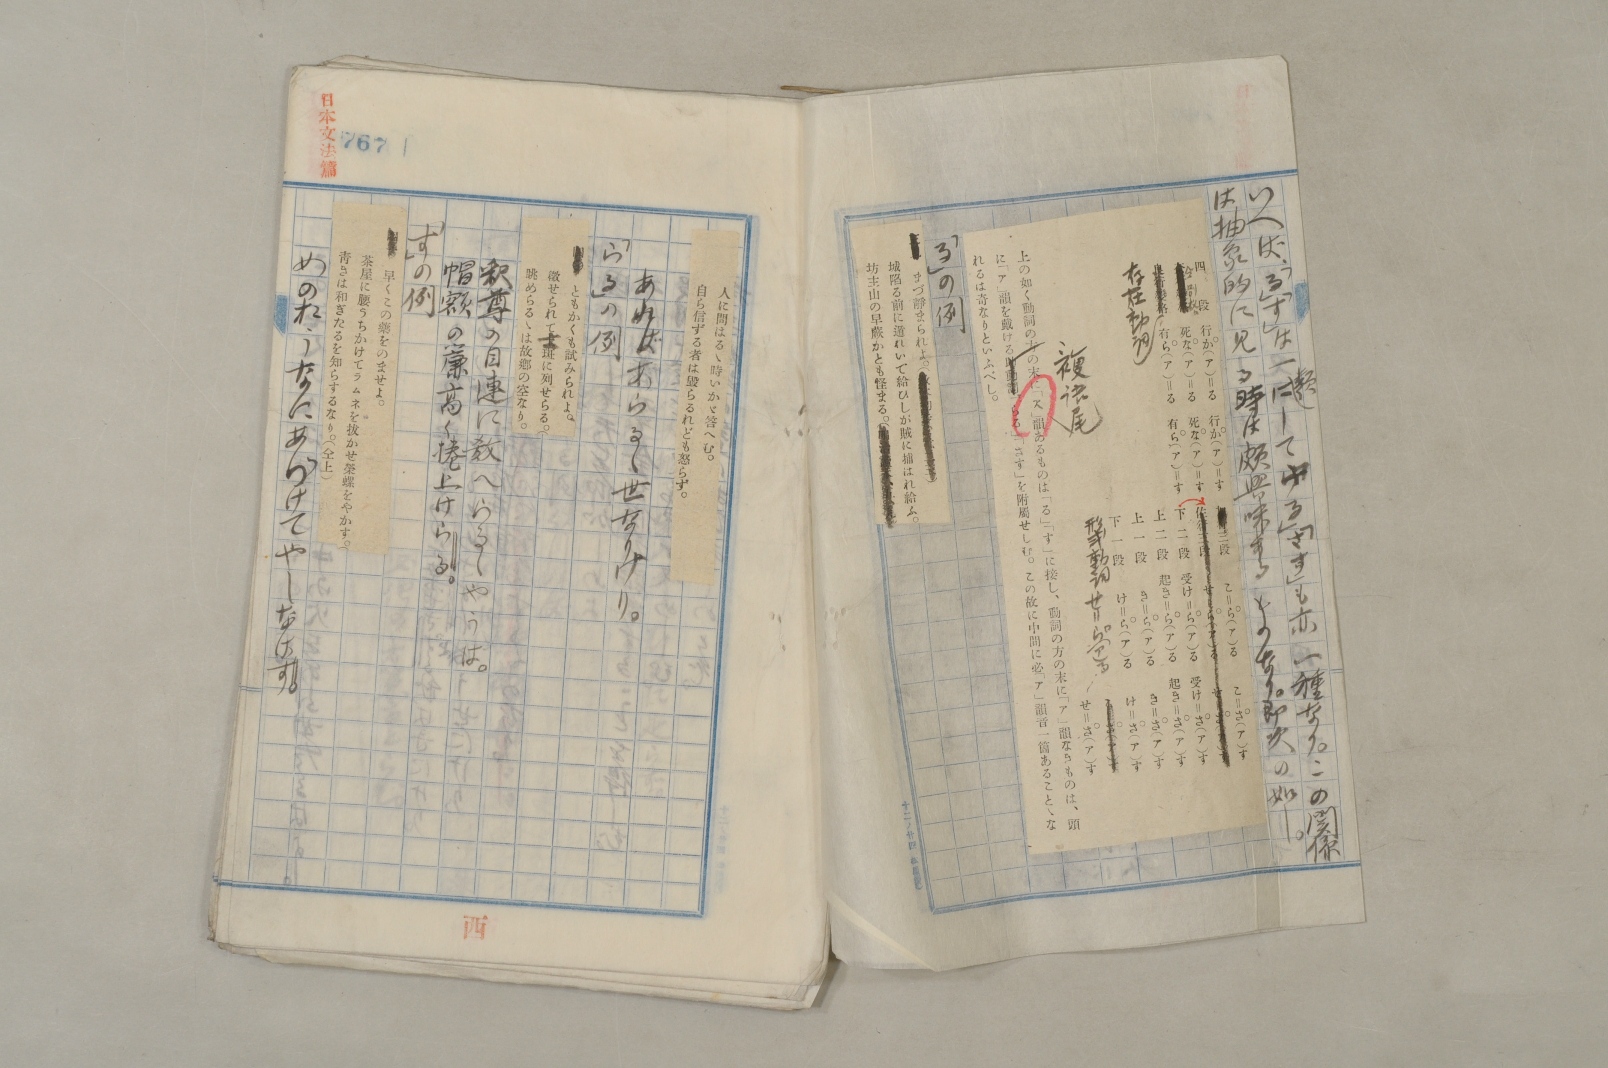 いへば、「る」「す」は一類にして「らる」「さす」も亦一種なり。この関係
は抽象的に見る時は頗興味あるものなり。即次の如し。
四段 行か(ア)=る 行か(ア)=す
死な(ア)=る 死な(ア)=す
存在動詞 有ら(ア)=る 有ら(ア)=す
三段 こ=ら(ア)る こ=さ(ア)す
下二段 受け=ら(ア)る 受け=さ(ア)す
上二段 起き=ら(ア)る 起き=さ(ア)す
上一段 き=ら(ア)る き=さ(ア)す
下一段 け=ら(ア)る け=さ(ア)す
形式動詞 せ=ら(ア)る せ=さ(ア)す
複語尾
上の如く動詞の方の末に「ア」韻あるものは「る」「す」に接し、動詞の方の末に「ア」韻なきものは、頭
に「ア」韻を戴ける「らる」「さす」を附屬せしむ。この故に中間に必「ア」韻音一箇あることゝな
れるは青なりといふべし。
「る」の例
まづ靜まられよ。
城陷る前に遁れいで給ひしが賊に捕はれ給ふ。
坊主山の早蕨かとも怪まる。
日本文法篇
767
人に問はるゝ時いかゞ答へむ。
自ら信ずる者は毀らるれども怒らず。
あればあらるゝ世なりけり。
「らる」の例
ともかくも試みられよ。
徵せられて士班に列せらる。
眺めらるゝは故鄕の空なり。
釈尊の目連に教へらるゝやうは。
帽額の簾高く捲上げらる。
「す」の例
早くこの藥をのませよ。
茶屋に腰うちかけてラムネを拔かせ榮螺をやかす。
靑きは和ぎたるを知らするなり。(仝上)
めのおとうなにあづけてやしなはす。
西